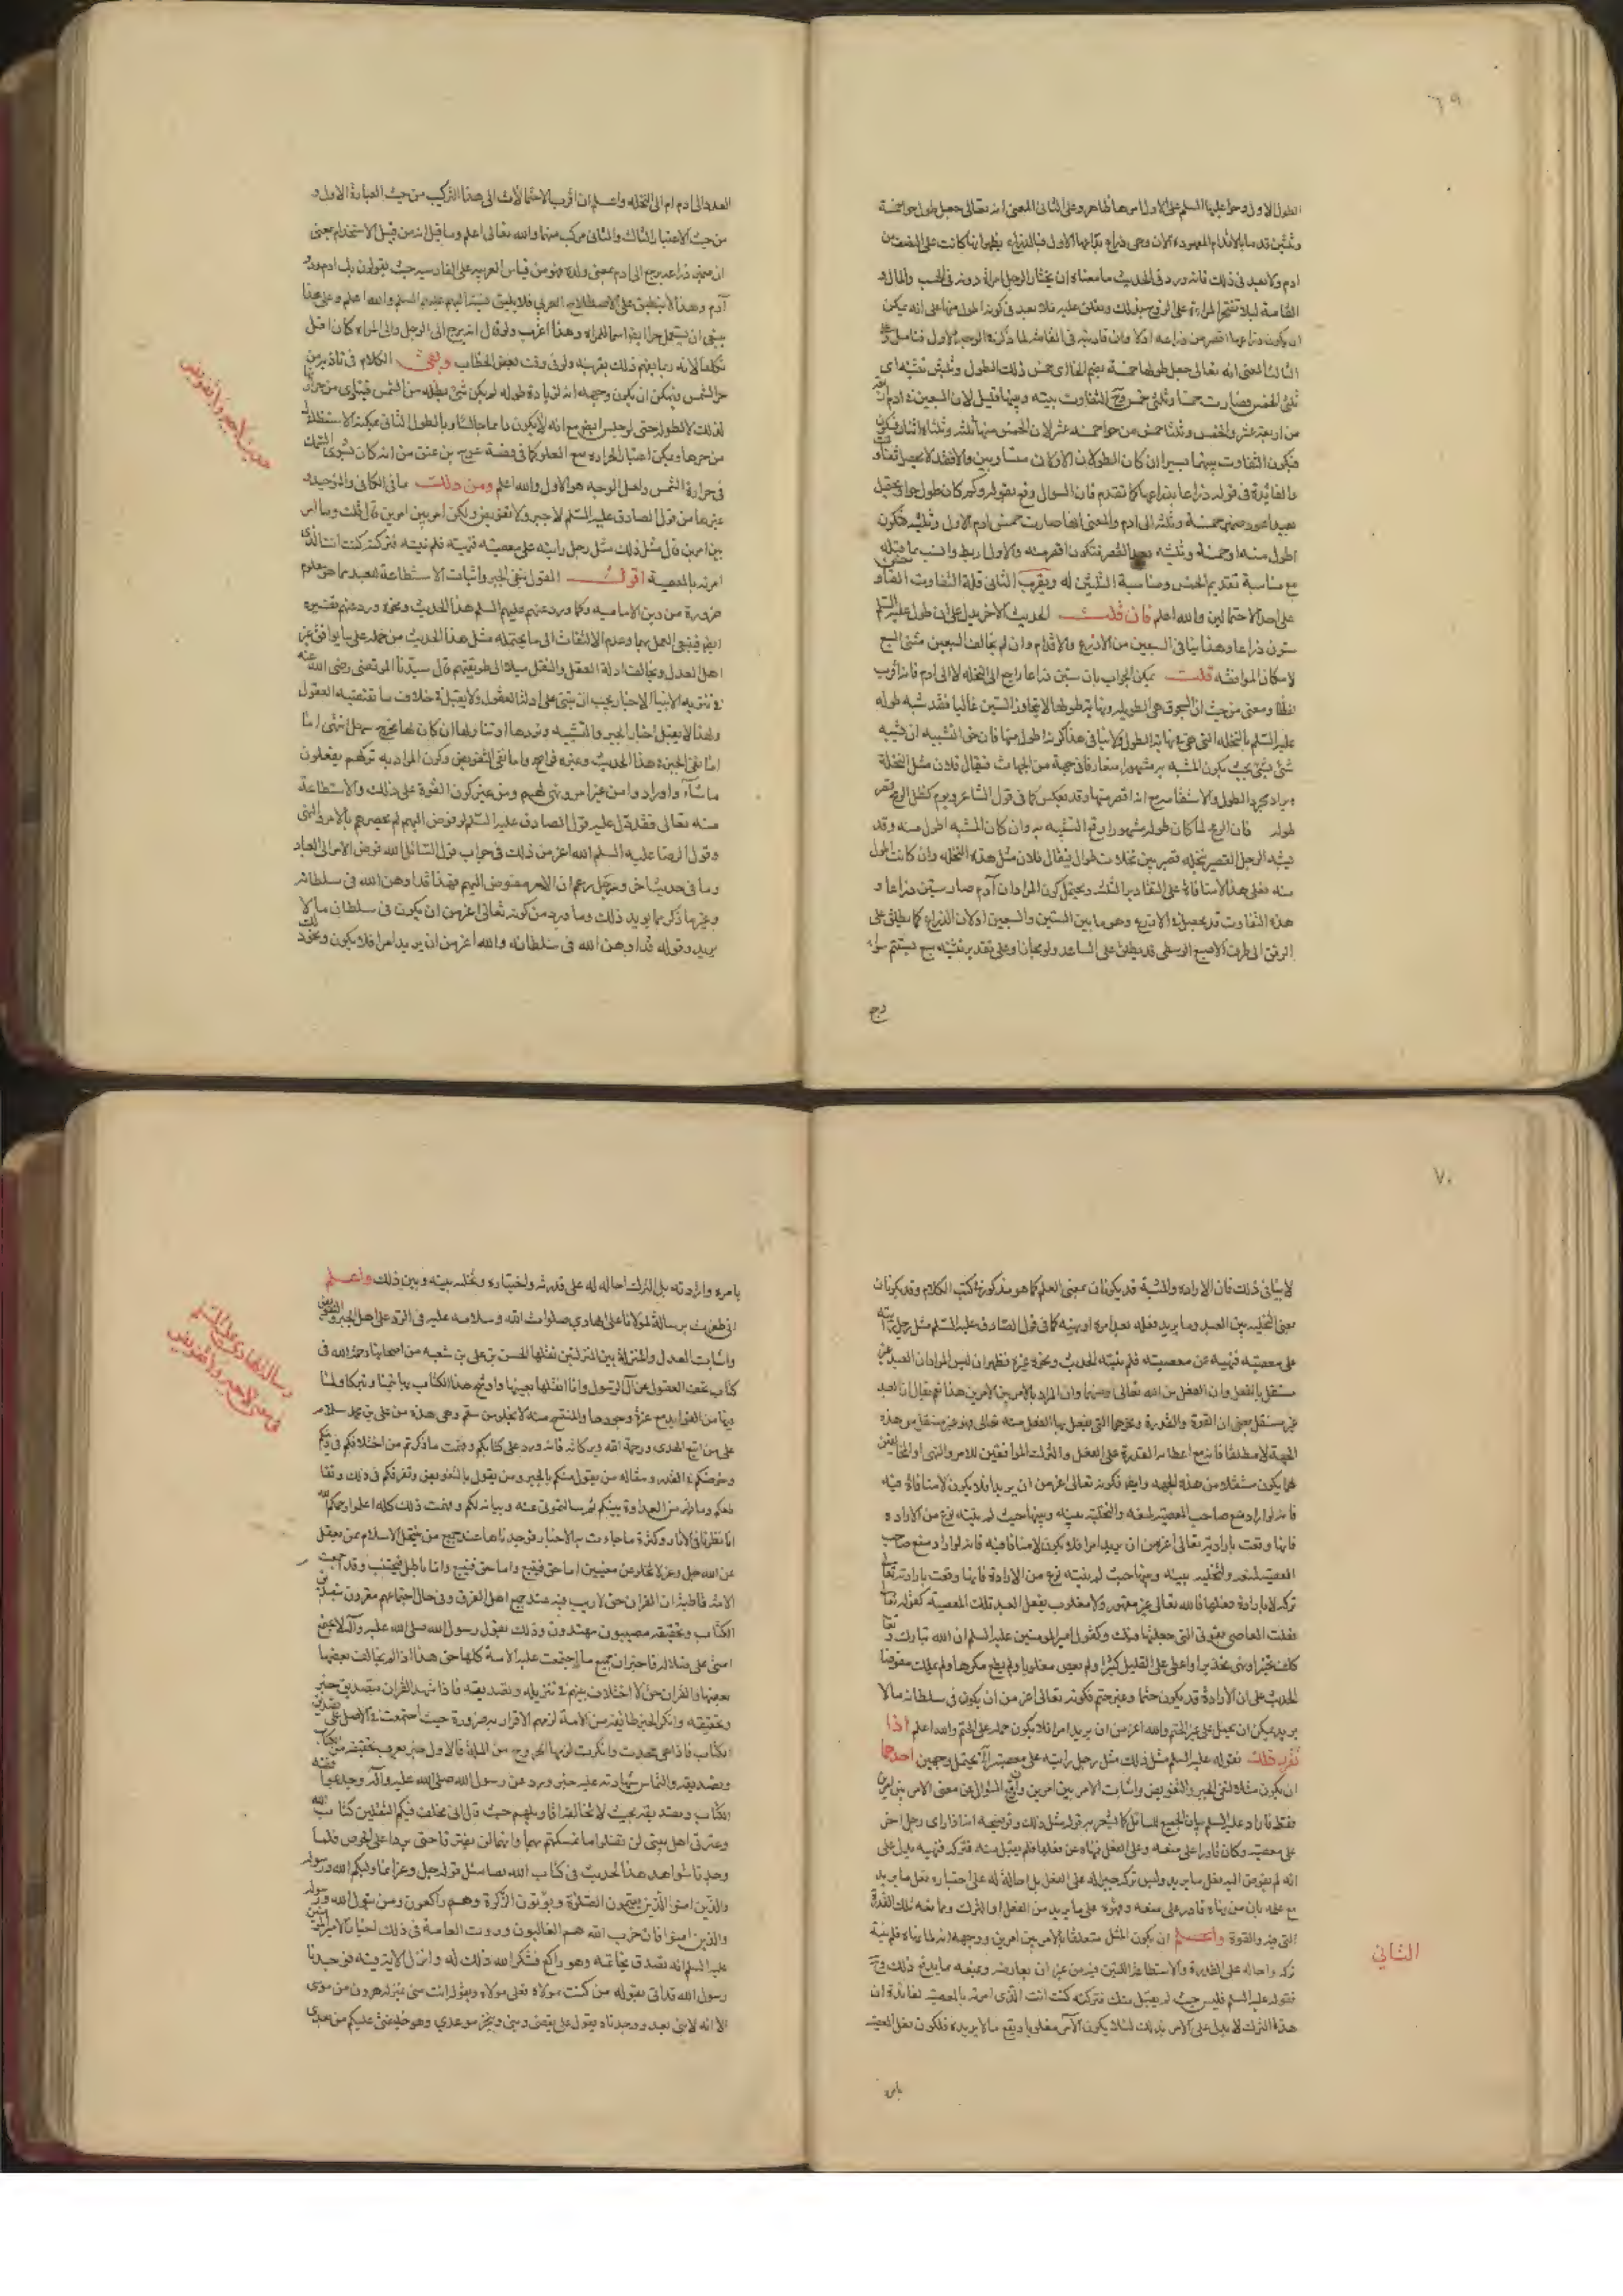 ٦٩
الطول الاول وحوا عليها السلم على الاول امرها ظاهر وعلى الثاني المعنى انه تعالى جعل طول حوا خمسة
وثلثين قدما بالاقدام المعهودة الآن وهي ذراع بذراعها الاول فبالذراع يظهر انها كانت على النصف من
ادم ولا بعد في ذلك فانه ورد في الحديث ما معناه ان يختار الرجل امراة دونه في الحسب والمال و
القامة ليلا تفتخر المراة على الزوج بذلك وتعلو عليه فلا بعد في كونه اطول منها على انه يمكن
ان يكون ذراعها اقصر من ذراعه
الثالث المعنى انه تعالى جعل طولها خمسة بضم الخا اى خمس ذلك الطول وثلثين تثنيه اى
ثلثى الخمس فصارت خمسا وثلثى خمس وح التفاوت بينه وبينها قليل لان السبعين
من اربعة عشر والخمس وثلثا خمس من حوا خمسة عشر لان الخمس منها ثلثه وثلثاه اثنان
فيكون التفاوت بينهما يسيرا ان كان الطولان الاولان متساويين والا فقد لا يحصل تفاوت
والفائدة في قوله ذراعا بذراعها كما تقدم فان السوال وقع بقوله وكم كان طول حوا ويحتمل
بعيدا عود ضمير خمسة وثلثه الى ادم والمعنى انها صارت خمس ادم الاول وثلثيه فتكون
اطول منه او خمسة وثلثيه بعد القصر فتكون اقصر منه والاول اربط وانسب بما قبله
مع مناسبة تقديم الخمس ومناسبة الثلثين له ويقرب الثاني قلة التفاوت
على احد الاحتمالين والله اعلم فان قلت الحديث الاخر يدل على ان طوله عليه السلم
ستون ذراعا وهذا ينافي السبعين من الاذرع والاقدام وان لم يخالف السبعين مثنى السبع
لامكان الموافقه قلت يمكن الجواب بان ستين ذراعا راجع الى النخله لا الى ادم فانه اقرب
لفظا ومعنى من حيث ان السحوق هي الطويله ونهاية طولها لا يتجاوز الستين غالبا فقد شبه طوله
عليه السلم بالنخله التي هي نهاية الطول ولا ينافي هذا كونه اطول منها فان حق التشبيه ان تشبيه
شيء بشيء يجب بكون المشبه به مشهورا متعارفا في جهة من الجهات فيقال فلان مثل النخلة
ويراد مجرد الطول والاستقامه مع انه اقصر منها وقد يعكس كما في قول الشاعر ويوم كظل الرمح قصر
طوله فان الرمح لما كان طوله مشهورا وقع التشبيه به وان كان المشبه اطول منه وقد
يشبه الرجل القصير بنخله قصيره بين نخلات طوال فيقال فلان مثل هذه النخله وان كانت اطول
منه فعلى هذا لا منافاة على التقادير الثلثه ويحتمل كون المراد ان آدم صار ستين ذراعا و
هذه التفاوت قد يحصل في الاذرع وهو ما بين الستين والسبعين اذ لان الذراع كما يطلق على
المرفق الى طرف الاصبع الوسطى قد يطلق على الساعد ولو مجازا وعلى تقدير تثنيه سبع يستقيم سواء
رجع
العدد الى ادم ام الى النخله واعلم ان اقرب الاحتمالات الى هذا التركيب من حيث العبارة الاول و
من حيث الاعتبار الثالث والثاني مركب منهما والله تعالى اعلم وما قيل انه من قبيل الاستخدام بمعنى
ان ضمير ذراعه يرجع الى ادم بمعنى ولده فهو من قياس العربيه على الفارسيه حيث يقولون
آدم وهذا لا ينطبق على الاصطلاح العربي فلا يليق نسبته اليهم عليهم السلم والله اعلم وعلى هذا
ينبغي ان يستعمل حوا ايضا اسما للمراه وهذا اغرب ولو قال انه يرجع الى الرجل والى المراه كان اقل
تكلفا لانه ربما يفهم ذلك بقرينه ولو في وقت بعض الخطاب وبقى الكلام في تاذيه من
حر الشمس ويمكن ان يكون وجهه انه لزيادة طوله لم يكن شيء يظله من الشمس فيتاذى من حرارتها
لذلك لا لطوله حتى لو جلس ايضا مع انه لا يكون داما جالسا وبالطول الثاني يمكنه الاستظلال
من حرها ويمكن اعتبار الحراره مع العلو كما في قصة عوج بن عنق من انه كان يشوى السمك
في حرارة الشمس ولعل الوجه هو الاول والله اعلم ومن ذلك ما في الكافي والتوحيد و
غيرهما من قول الصادق عليه السلم لا جبر ولا تفويض ولكن امر بين امرين قال قلت وما امر
بين امرين قال مثل ذلك مثل رجل رايته على معصيته فنهيته فلم ينته فتركته كنت انت الذي
امرته بالمعصية اقول القول بنفي الجبر واثبات الاستطاعة للعبد مما هو معلوم
ضرورة من دين الاماميه وكما ورد عنهم عليهم السلم هذا الحديث ونحوه ورد عنهم تفسيره
ايضا فينبغي العمل بها وعدم الالتفات الى ما يحتمله مثل هذا الحديث من حمله على ما يوافق غير
اهل العدل ويخالف ادلة العقل والنقل ميلا الى طريقتهم قال سيدنا المرتضى رضى الله عنه
في تنزيه الانبيا الاخبار يجب ان تبنى على ادلة العقول ولا يقبل خلاف ما تقتضيه العقول
ولهذا لا يقبل اخبار الجبر والتشبيه ونردها او نتاولها ان كان لها مخرج سهل انتهى اما
اما نفي الجبر في هذا الحديث وغيره فواضح واما نفي التفويض وكون المراد به تركهم يفعلون
ما شاؤا وارادوا من غير امر ونهى لهم ومن غير كون القوة على ذلك والاستطاعة
منه تعالى فقد دل عليه قول الصادق عليه السلم لو فوض اليهم لم يحصرهم بالامر والنهى
وقول الرضا عليه السلم الله اعز من ذلك في جواب قول السائل الله فوض الامر الى العباد
وما في حديث اخر ورجل يزعم ان الامر مفوض اليهم فهذا قد اوهن الله في سلطانه
وغيرها ذكر مما يويد ذلك وما ورد من كونه تعالى اعز من ان يكون في سلطانه ما لا
يريد وقوله قد اوهن الله في سلطانه والله اعز من ان يريد امرا فلا يكون ونحو ذلك
حديث لا جبر ولا تفويض
٧٠
لا ينافي ذلك فان الاراده والمشية قد يكونان بمعنى العلم كما هو مذكور في كتب الكلام وقد يكونان
بمعنى التخليه بين العبد وما يريد فعله بعد امره او نهيه كما في قول الصادق عليه السلم مثل رجل رايته
على معصيته فنهيته عن معصيته فلم ينته الحديث ونحوه غيره فظهر ان ليس المراد ان العبد غير
مستقل بالفعل وان الفعل من الله تعالى ومنها وان المراد بالامر بين الامرين هذا ثم يقال ان العبد
غير مستقل بمعنى ان القوة والقدرة ونحوهما التي يفعل بها الفعل منه تعالى فهو غير مستقل من هذه
الجهة لا مطلقا فانه مع اعطائه القدرة على الفعل والترك الموافقين للامر والنهى او المخالفين
لهما يكون مستقلا من هذه الجهه وايضا فكونه تعالى اعز من ان يريد امرا فلا يكون لا منافاة فيه
فانه لو اراد منع صاحب المعصيه لمنعه والتخليه بينه وبينها حيث لم ينته نوع من الاراده
فانها وقعت بارادته تعالى اعز من ان يريد امرا فلا يكون لا منافاة فيه فانه لو اراد منع صاحب
المعصيه لمنعه والتخليه بينه وبينها حيث لم ينته نوع من الارادة فانها وقعت بارادته تعالى
تركه لا بارادة فعلها فالله تعالى غير مقهور ولا مغلوب بفعل العبد تلك المعصية كقوله تعالى
فعلت المعاصي بقوتي التي جعلتها فيك وكقول امير المومنين عليه السلم ان الله تبارك وتعالى
كلف تخييرا ونهى تحذيرا واعطى على القليل كثيرا ولم يعص مغلوبا ولم يطع مكرها ولم يملك مفوضا
الحديث على ان الارادة قد يكون حتما وغير حتم فكونه تعالى اعز من ان يكون في سلطانه ما لا
يريد يمكن ان يحمل على غير الحتم والله اعز من ان يريد امرا فلا يكون حمله على الحتم والله اعلم اذا
تقرر ذلك فقوله عليه السلم مثل ذلك مثل رجل رايته على معصيه الخ يحتمل وجهين احدهما
ان يكون مثلا لنفي الجبر والتفويض واثبات الامر بين امرين وان وقع السوال عن معنى الامر بين امرين
فقط فاراد عليه السلم بيان الجميع للسائل كما اشعر به قوله مثل ذلك وتوضيحه انه اذا راى رجل اخر
على معصيه وكان قادرا على منعه وعلى الفعل فنهاه عن فعلها فلم يقبل منه فتركه فنهيه يدل على
انه لم يفوض اليه بفعل ما يريد وليس تركه جبرا له على الفعل بل احالة له على اختياره بفعل ما يريد
مع علمه بان من نهاه قادر على منعه وقهره على ما يريد من الفعل او الترك وما معه تلك القدرة
التي فيه والقوة واعلم ان يكون المثل متعلقا بالامر بين امرين ووجهه انه لما نهاه فلم ينته
تركه واحاله على القدرة والاستطاعة اللتين فيه من غير ان يعارضه ويمنعه مما يدفع ذلك وح
فقوله عليه السلم فليس حيث لم يقبل منك فتركته كنت انت الذي امرته بالمعصيه لفائدة ان
هذا الترك لا يدل على الامر بذلك لئلا يكون الامر مغلوبا ويقع ما لا يريده فلكون فعل المعصيه
الثاني
بامره
بامره وارادته بل الترك احاله له على قدرته واختياره وتخليه بينه وبين ذلك واعلم
اني ظفرت برسالة لمولانا على الهادي صلوات الله وسلامه عليه في الرد على اهل الجبر والتفويض
واثبات العدل والمنزلة بين المنزلتين نقلها الحسن بن على بن شعبه من اصحابنا رحمه الله في
كتاب تحف العقول عن آل الرسول وانا انقلها بعينها واوشح هذا الكتاب بها تيمنا وتبركا ولما
فيها من الفوائد مع عزة وجودها والمنتسخ منه لا يخلو من سقم وهي هذه من على بن محمد سلام
على من اتبع الهدى ورحمة الله وبركاته فانه ورد على كتابكم وفهمت ما ذكرتم من اختلافكم في دينكم
وخوضكم في القدر ومقاله من يقول منكم بالجبر ومن يقول بالتفويض وتفرقكم في ذلك وتقا
طعكم وما ظهر من العداوة بينكم ثم سالتموني عنه وبيانه لكم وفهمت ذلك كله اعلموا رحمكم الله
انا نظرنا في الاثار وكثرة ما جاءت به الاخبار فوجدناها عند جميع من ينتحل الاسلام ممن يعقل
عن الله جل وعز لا تخلو من معنيين اما حق فيتبع واما حق فيتبع واما باطل فيجتنب وقد اجتمعت
الامة قاطبة ان القران حق لا ريب فيه عند جميع اهل الفرق وفي حال اجتماعهم مقرون بتصديق
الكتاب وتحقيقه مصيبون مهتدون وذلك بقول رسول الله صلى الله عليه وآله لا تجتمع
امتى على ضلاله فاخبر ان جميع ما اجتمعت عليه الامة كلها حق هذا اذا لم يخالف بعضها
بعضا والقران حق لا اختلاف بينهم في تنزيله وتصديقه فاذا شهد القران بتصديق خبر
وتحقيقه وانكر الخبر طائفه من الامة لزمهم الاقرار به ضرورة حيث اجتمعت في الاصل على تصديق
الكتاب فاذا هي جحدت وانكرت لزمها الخروج من الملة فالاول خبر يعرف تحقيقه من الكتاب
وتصديقه والتماس شهادته عليه خبر ورد عن رسول الله صلى الله عليه وآله ووجد بموافقة
الكتاب وتصديقه بحيث لا تخالفه اقاويلهم حيث قال انى مخلف فيكم الثقلين كتاب الله
وعترتى اهل بيتى لن تضلوا ما تمسكتم بهما وانهما لن يفترقا حتى يردا على الحوض فلما
وجدنا شواهد هذا الحديث في كتاب الله نصا مثل قوله جل وعز انما وليكم الله ورسوله
والذين امنوا الذين يقيمون الصلوة ويؤتون الزكوة وهم راكعون ومن يتول الله ورسوله
والذين امنوا فان حزب الله هم الغالبون وروت العامة في ذلك اخبارا لامير المومنين
عليه السلم انه تصدق بخاتمه وهو راكع فشكر الله ذلك له وانزل الاية فيه فوجدنا
رسول الله قد اتى بقوله من كنت مولاه فعلى مولاه وبقوله انت منى بمنزلة هرون من موسى
الا انه لا نبى بعدى ووجدناه يقول على يقضى دينى وينجز موعدى وهو خليفتى عليكم من بعدى
رسالة الهادى عليه السلم
في معنى لا جبر ولا تفويض